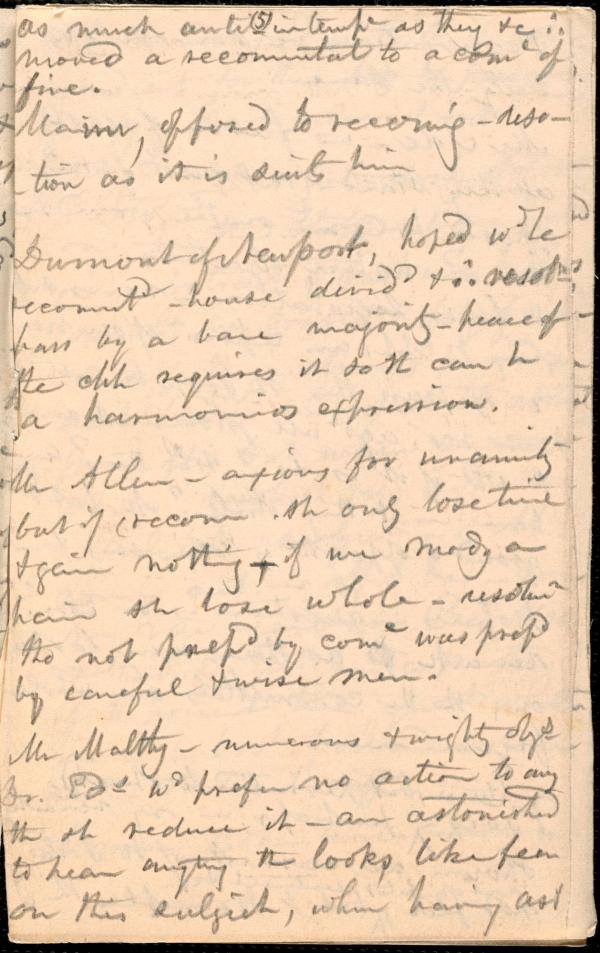 as much anti (5) intempe as they &c ∴
moved a recommittal to a come of
five.
Mann, opposed to recomg - reso-
tion as it is suits him
Dumont of Newport, hoped wd be
recommitd - house dividd & ∴ resolns
pass by a bare majority - peace of
the chh requires it so tt can be
a harmonios expression.
Mr Allen - axious for unanimity
but if recomm. sh only lose time
& gain nothing & if we modg a
hair sh lose whole - resolun
tho not prepd by come was prepd
by careful & wise men.
Mr Maltby - numerous & wighty objs
Br. Eds wd prefer no action to any
tt sh reduce it - am astonished
to hear anythg tt looks like fear
on this subject, when having ast